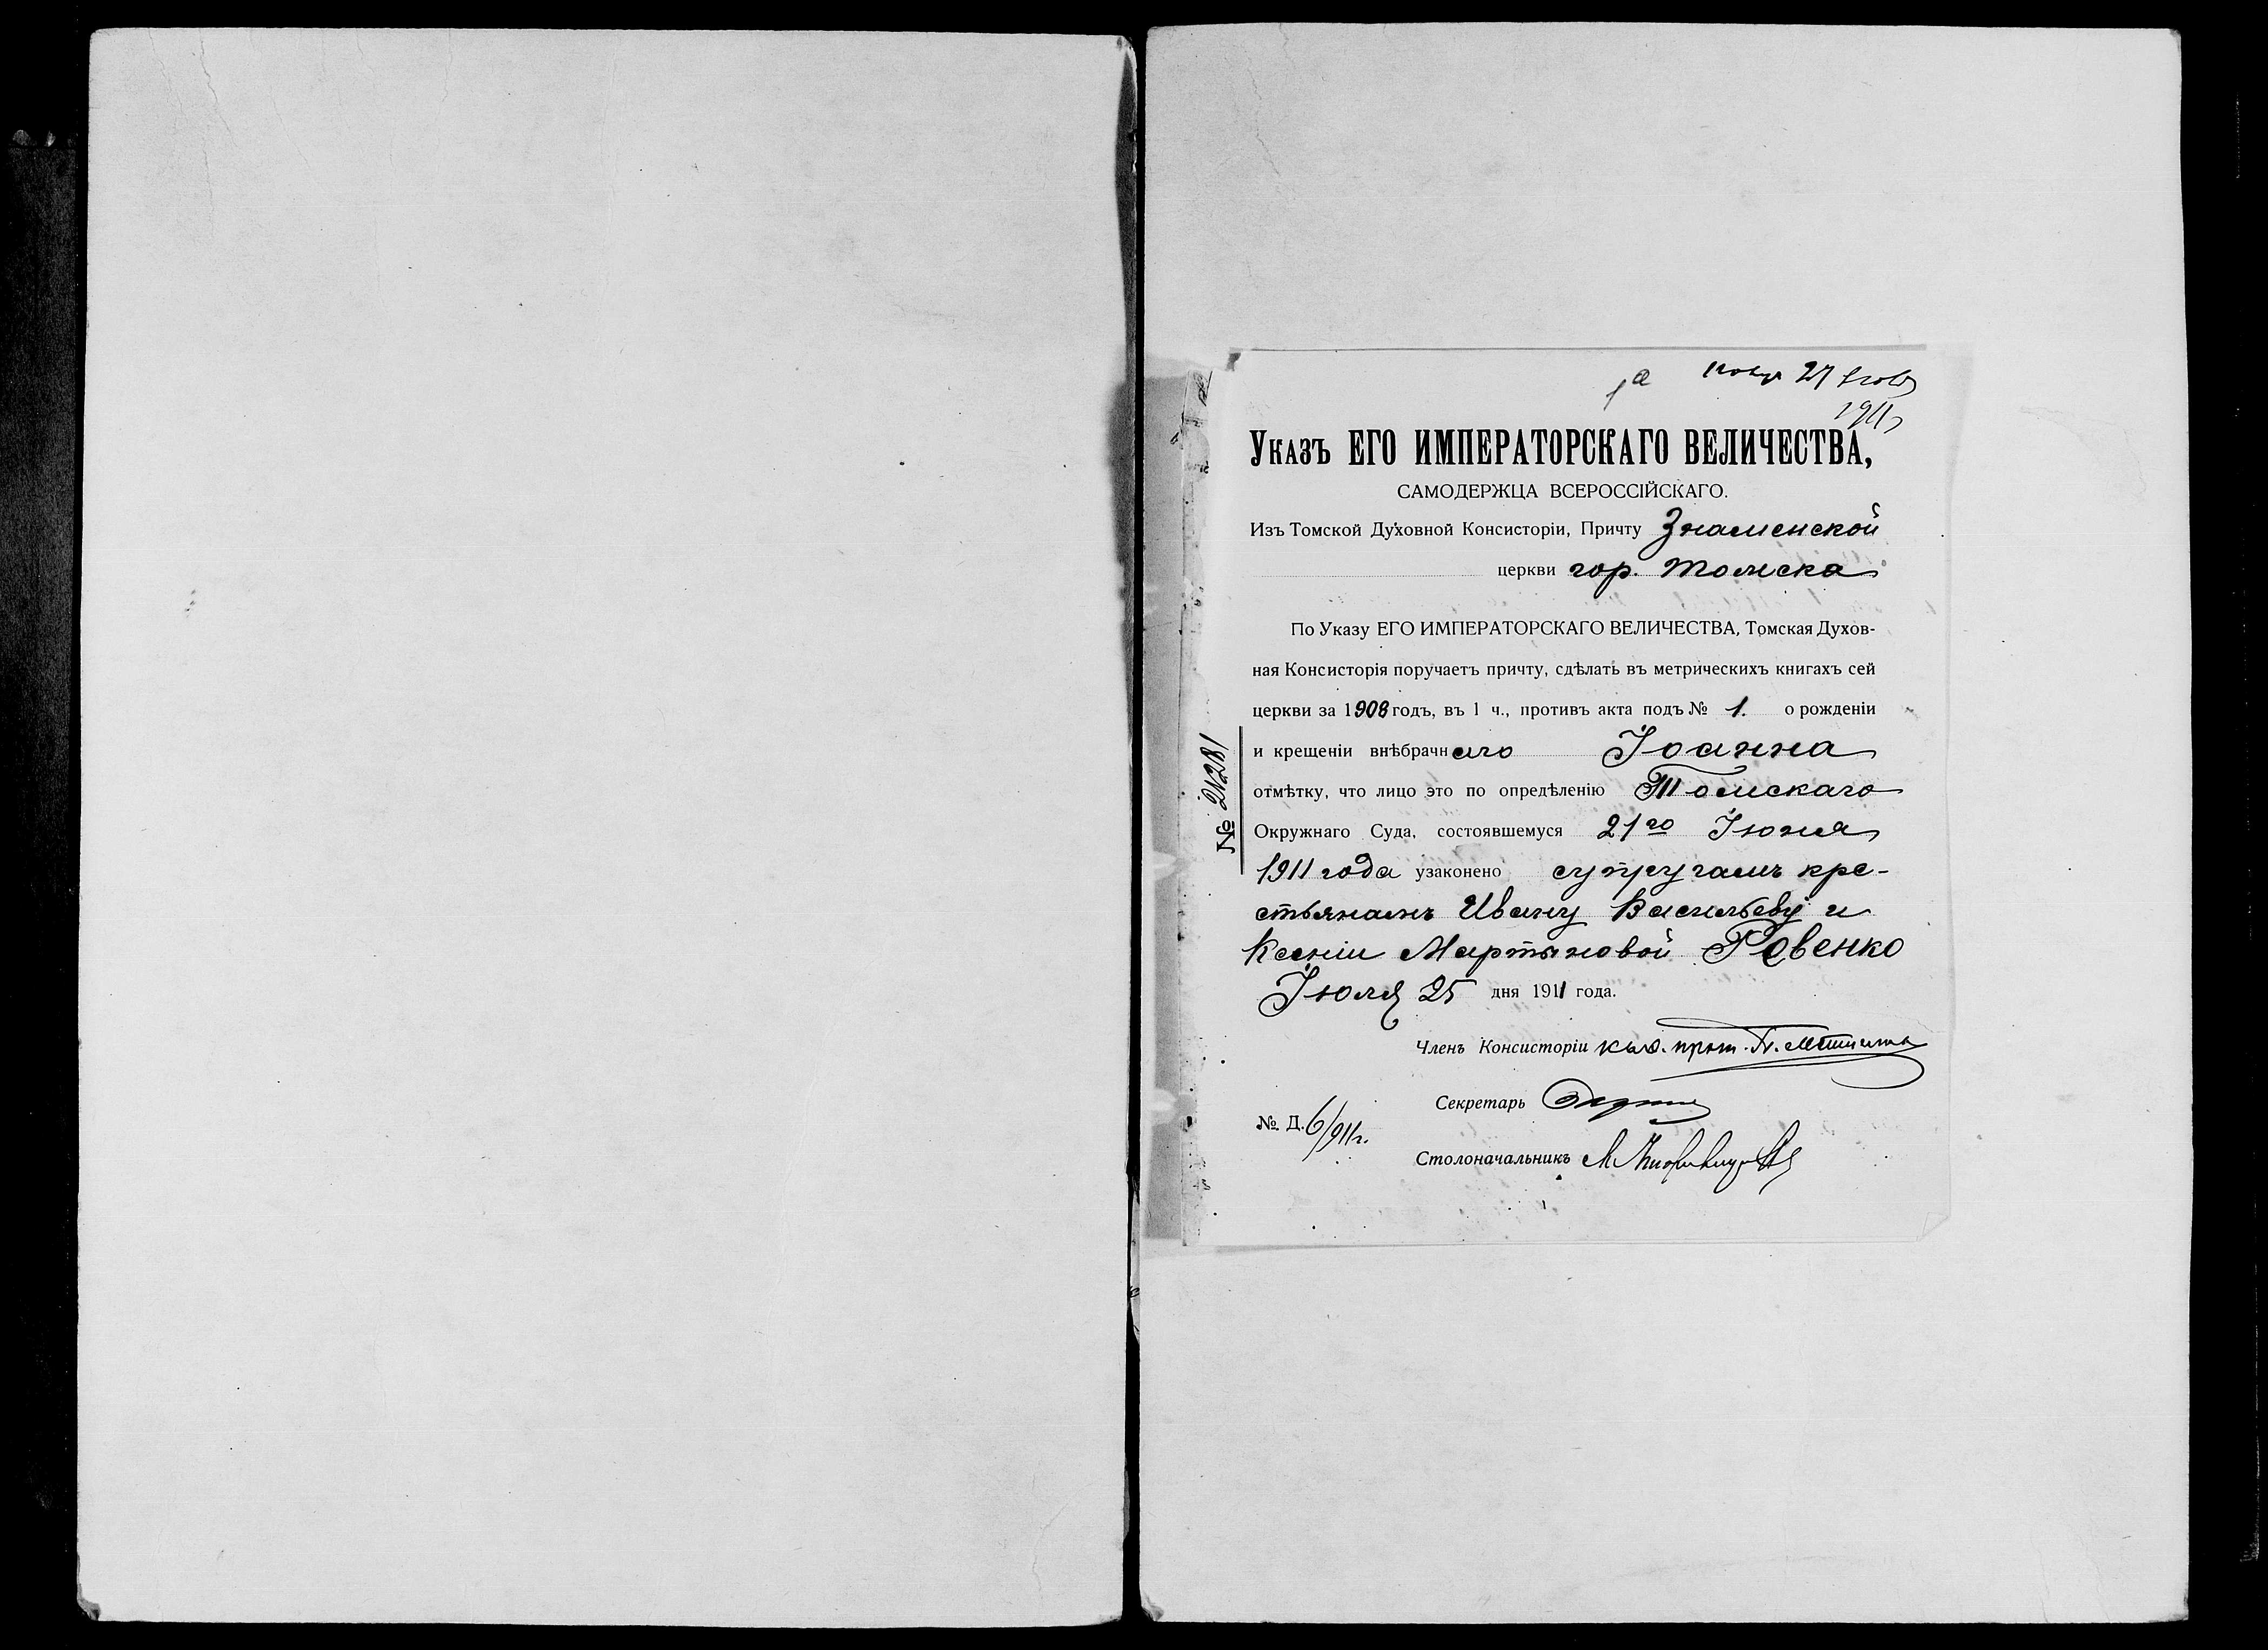 27
1911
Указъ ЕГО ИМПЕРАТОРСКАГО ВЕЛИЧЕСТВА,
САМОДЕРЖЦА ВСЕРОССІЙСКАГО.
Изъ Томской Духовной Консисторіи, Причту Знаменской
церкви гор. Томска
По Указу ЕГО ИМПЕРАТОРСКАГО ВЕЛИЧЕСТВА, Томская Духов-
ная Консисторія поручаетъ причту, сдѣлать въ метрическихъ книгахъ сей
церкви за 1908 годъ, въ 1 ч., противъ акта подъ № 1. о рожденіи
и крещеніи внѣбрачнаго Іоанна
отмѣтку, что лицо это по опредѣленію Томскаго
Окружнаго Суда, состоявшемуся 21го Іюня
1911 года узаконено супругамъ кре-
стьянамъ Ивану Васильеву и
Ксеніи Мартыновой Ровенко
Іюля 25 дня 1911 года.
Членъ Консисторіи прот. П.
Секретарь
№ Д. 6/911г.
Столоначальникъ М
№ 21281